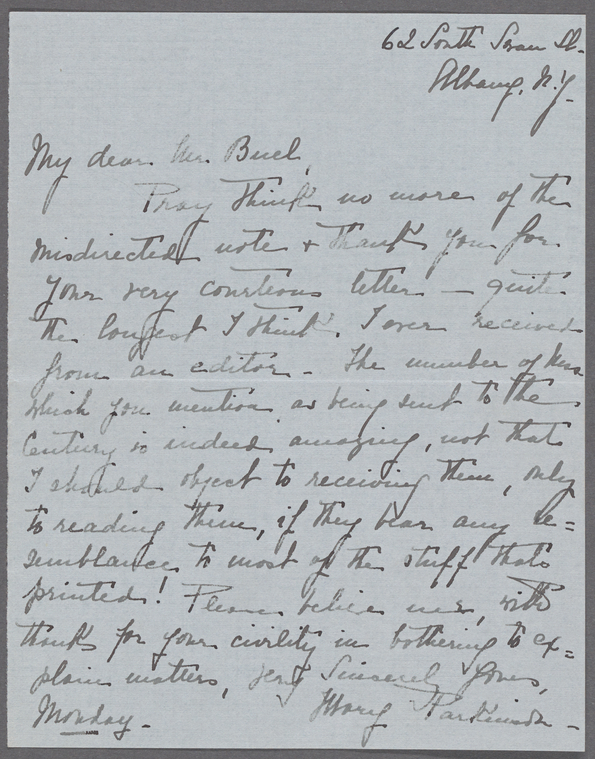 62 South Swan St.
Albany, N.Y.
My dear Mr. Buel,
Pray think no more of the
misdirected note + thank you for
your very courteous letter — quite
the longest I think, I ever received
from an editor. The number of Mss
which you mention as being sent to the
Century is indeed amazing, not that
I should object to receiving them, only
to reading them, if they bear any re=
semblance to most of the stuff thats
printed! Please believe me, with
thanks for your civility in bothering to ex=
plain matters, very Sincerely Yours,
Monday. Mary Parkinson